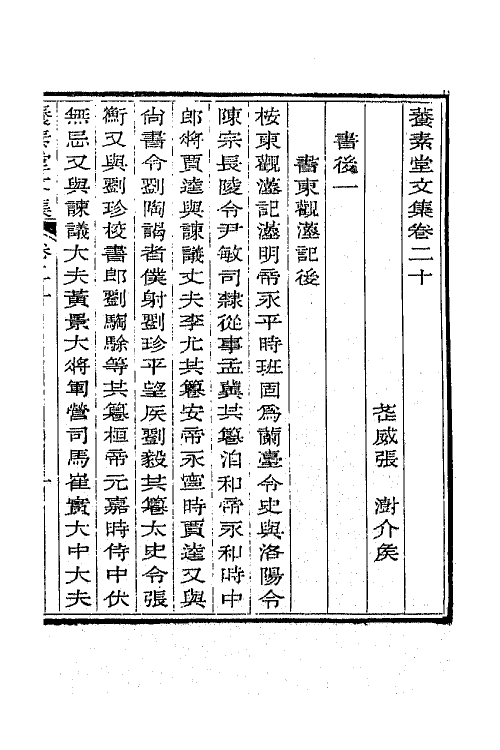 養素堂文集卷二十
茬威張　澍介矦
書後一
書東觀漢記後
桉東觀漢記漢明帝永平時班固爲蘭臺令史與洛陽令
陳宗長陵令尹敏司隸從事孟冀共篹洎和帝永和時中
郎將賈逵與諫議丈夫李尤共篹安帝永寍時賈逵又與
尙書令劉陶謁者僕射劉珍平望矦劉毅共篹太史令張
衡又與劉珍校書郎劉騊駼等共篹桓帝元嘉時侍中伏
無忌又與諫議大夫黃景大將軍營司馬崔實大中大夫
養素堂文集 卷二十